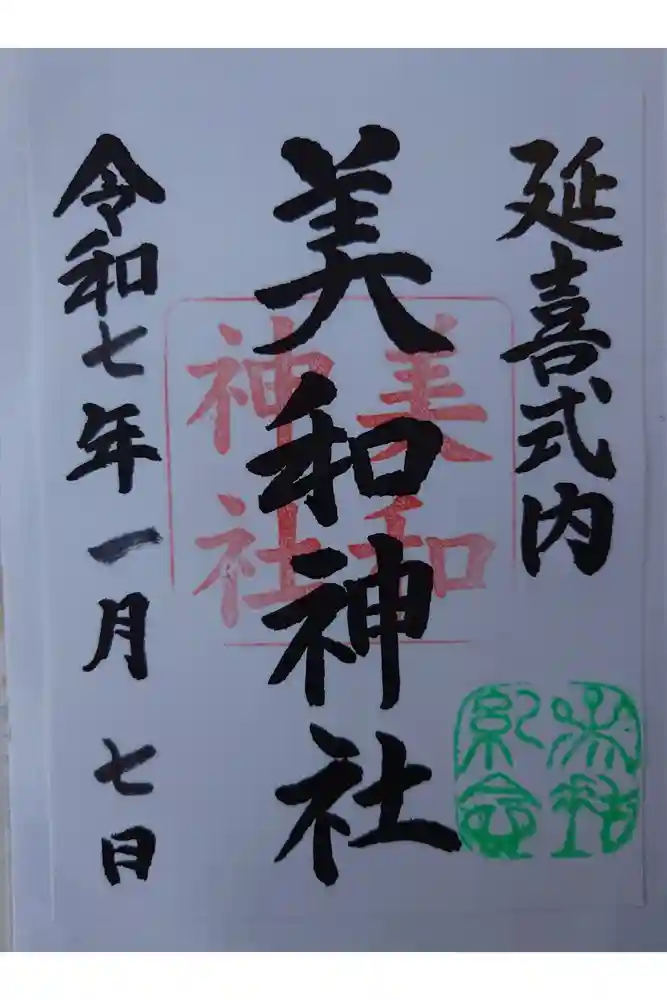 延喜式内
美和神社
美和
神社
令和七年一月七日
参拝
紀念